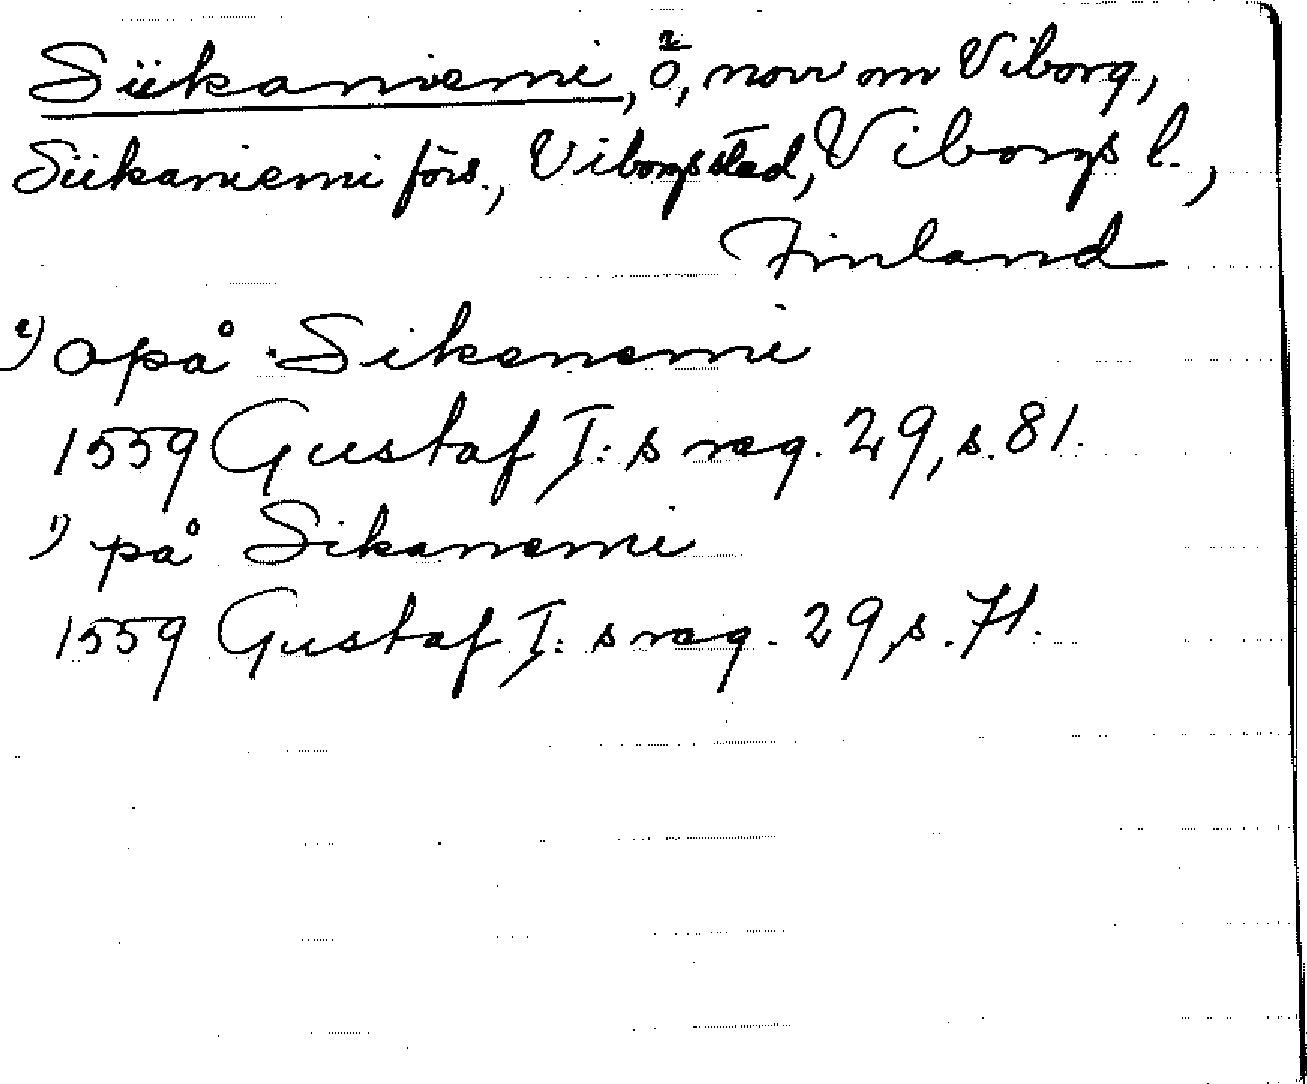 Siikaniemi, ö, norr om Viborg,
Siikaniemi förs., Viborgs stad, Viborgs l.,
Finland
2) opå Sikanemi
1559 Gustaf I:s reg. 29, s. 81.
1) på Sikanemi
1559 Gustaf I:s reg. 29, s. 71.